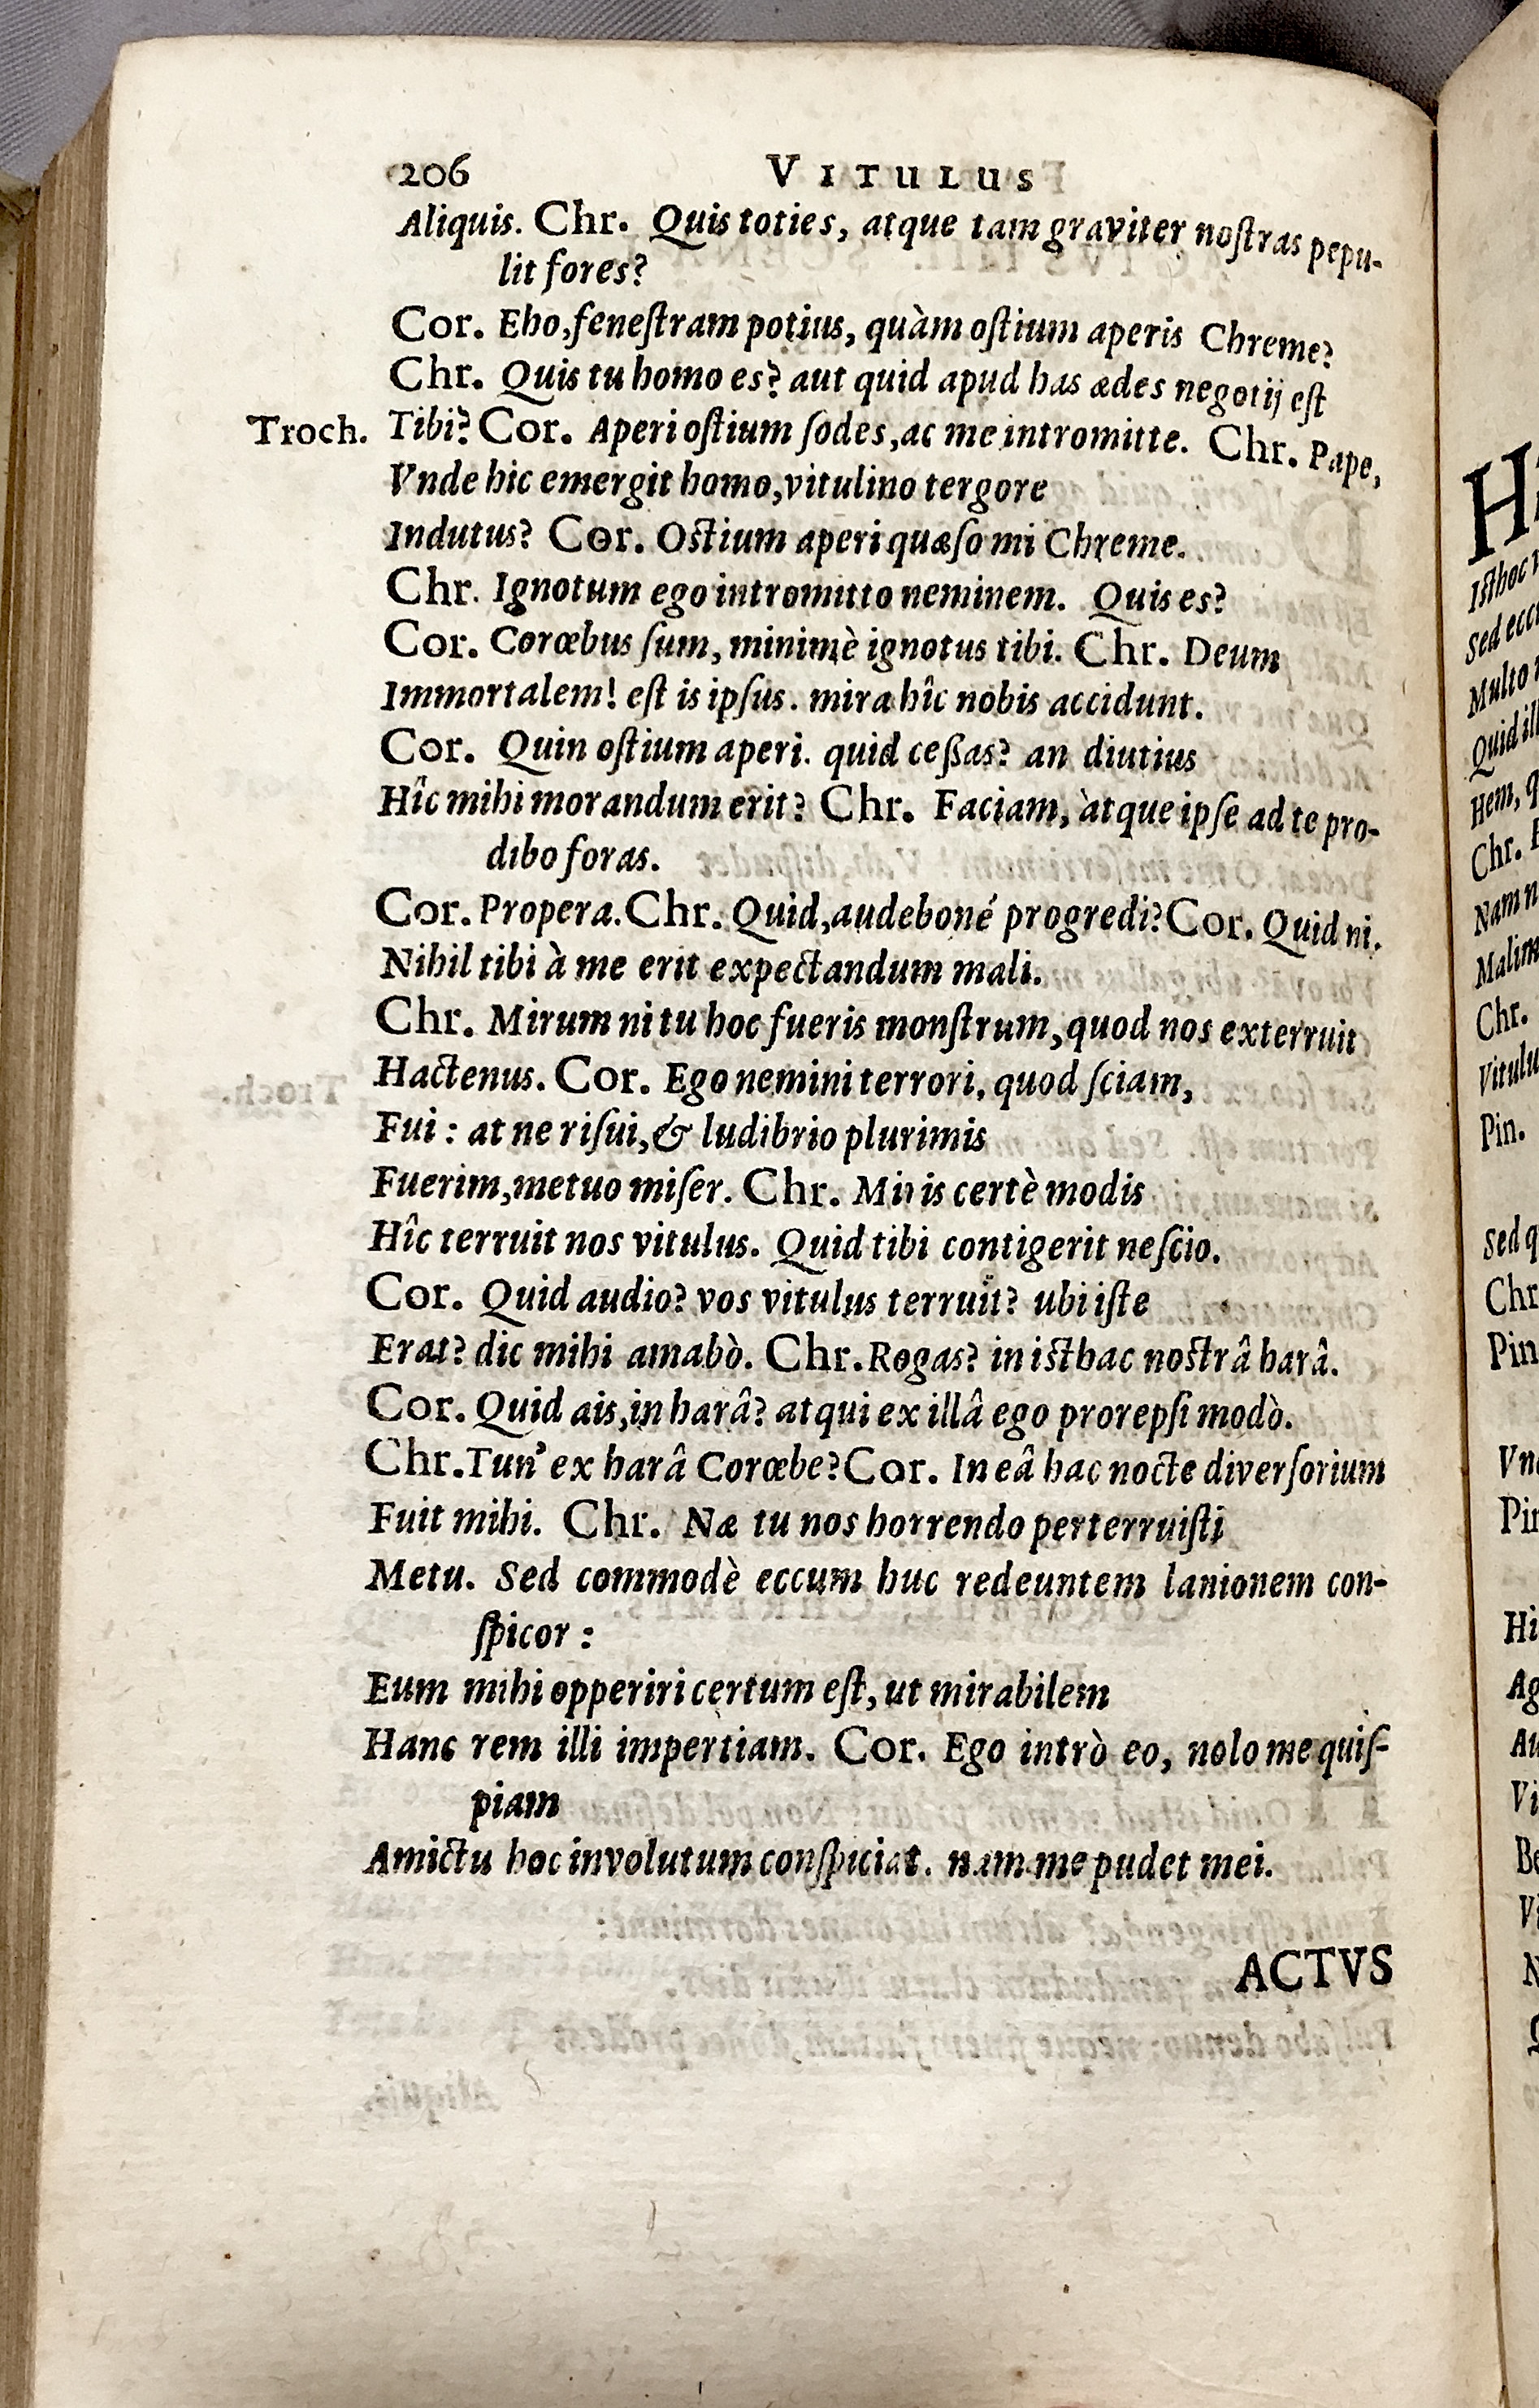 206 VITULUS
Aliquis. Chr. Quis toties, atque tam graviter noſtras pepu-
lit fores?
Cor. Eho, feneſtram potius, quàm oſtium aperis Chreme?
Chr. Quis tu homo es? aut quid apud has ædes negotij eſt
Troch. Tibi? Cor. Aperi oſtium ſodes, ac me intromitte. Chr. Pape,
Vnde hic emergit homo, vitulino tergore
Indutus? Cor. Oſtium aperi quæſo mi Chreme.
Chr. Ignotum ego intromitto neminem. Quis es?
Cor. Corœbus ſum, minimè ignotus tibi. Chr. Deum
Immortalem! eſt is ipſus. mira hîc nobis accidunt.
Cor. Quin oſtium aperi. quid ceßas? an diutius
Hîc mihi morandum erit? Chr. Faciam, atque ipſe ad te pro-
dibo foras.
Cor. Propera. Chr. Quid, audeboné progredi? Cor. Quid ni.
Nihil tibi à me erit expectandum mali.
Chr. Mirum ni tu hoc fueris monſtrum, quod nos exterruit
Hactenus. Cor. Ego nemini terrori, quod ſciam,
Fui : at ne riſui, & ludibrio plurimis
Fuerim, metuo miſer. Chr. Miris certè modis
Hîc terruit nos vitulus. Quid tibi contigerit neſcio.
Cor. Quid audio? vos vitulus terruit? ubi iſte
Erat? dic mihi amabò. Chr. Rogas? in iſthac noſtrâ harâ.
Cor. Quid ais, in harâ? atqui ex illâ ego prorepſi modò.
Chr. Tun' ex harâ Corœbe? Cor. In eâ hac nocte diverſorium
Fuit mihi. Chr. Næ tu nos horrendo perterruiſti
Metu. Sed commodè eccum huc redeuntem lanionem con-
ſpicor :
Eum mihi opperiri certum eſt, ut mirabilem
Hanc rem illi impertiam. Cor. Ego intrò eo, nolo me quiſ-
piam
Amictu hoc involutum conſpiciat. nam me pudet mei.
ACTVS
H
Iſthoc
Sed ecc
Multo
Quid ill
Hem, q
Chr.
Nam n
Malim
Chr.
Vitulu
Pin.
Sed q
Chr
Pin
Vnd
Pin
Hi
Ag
Vi
Be